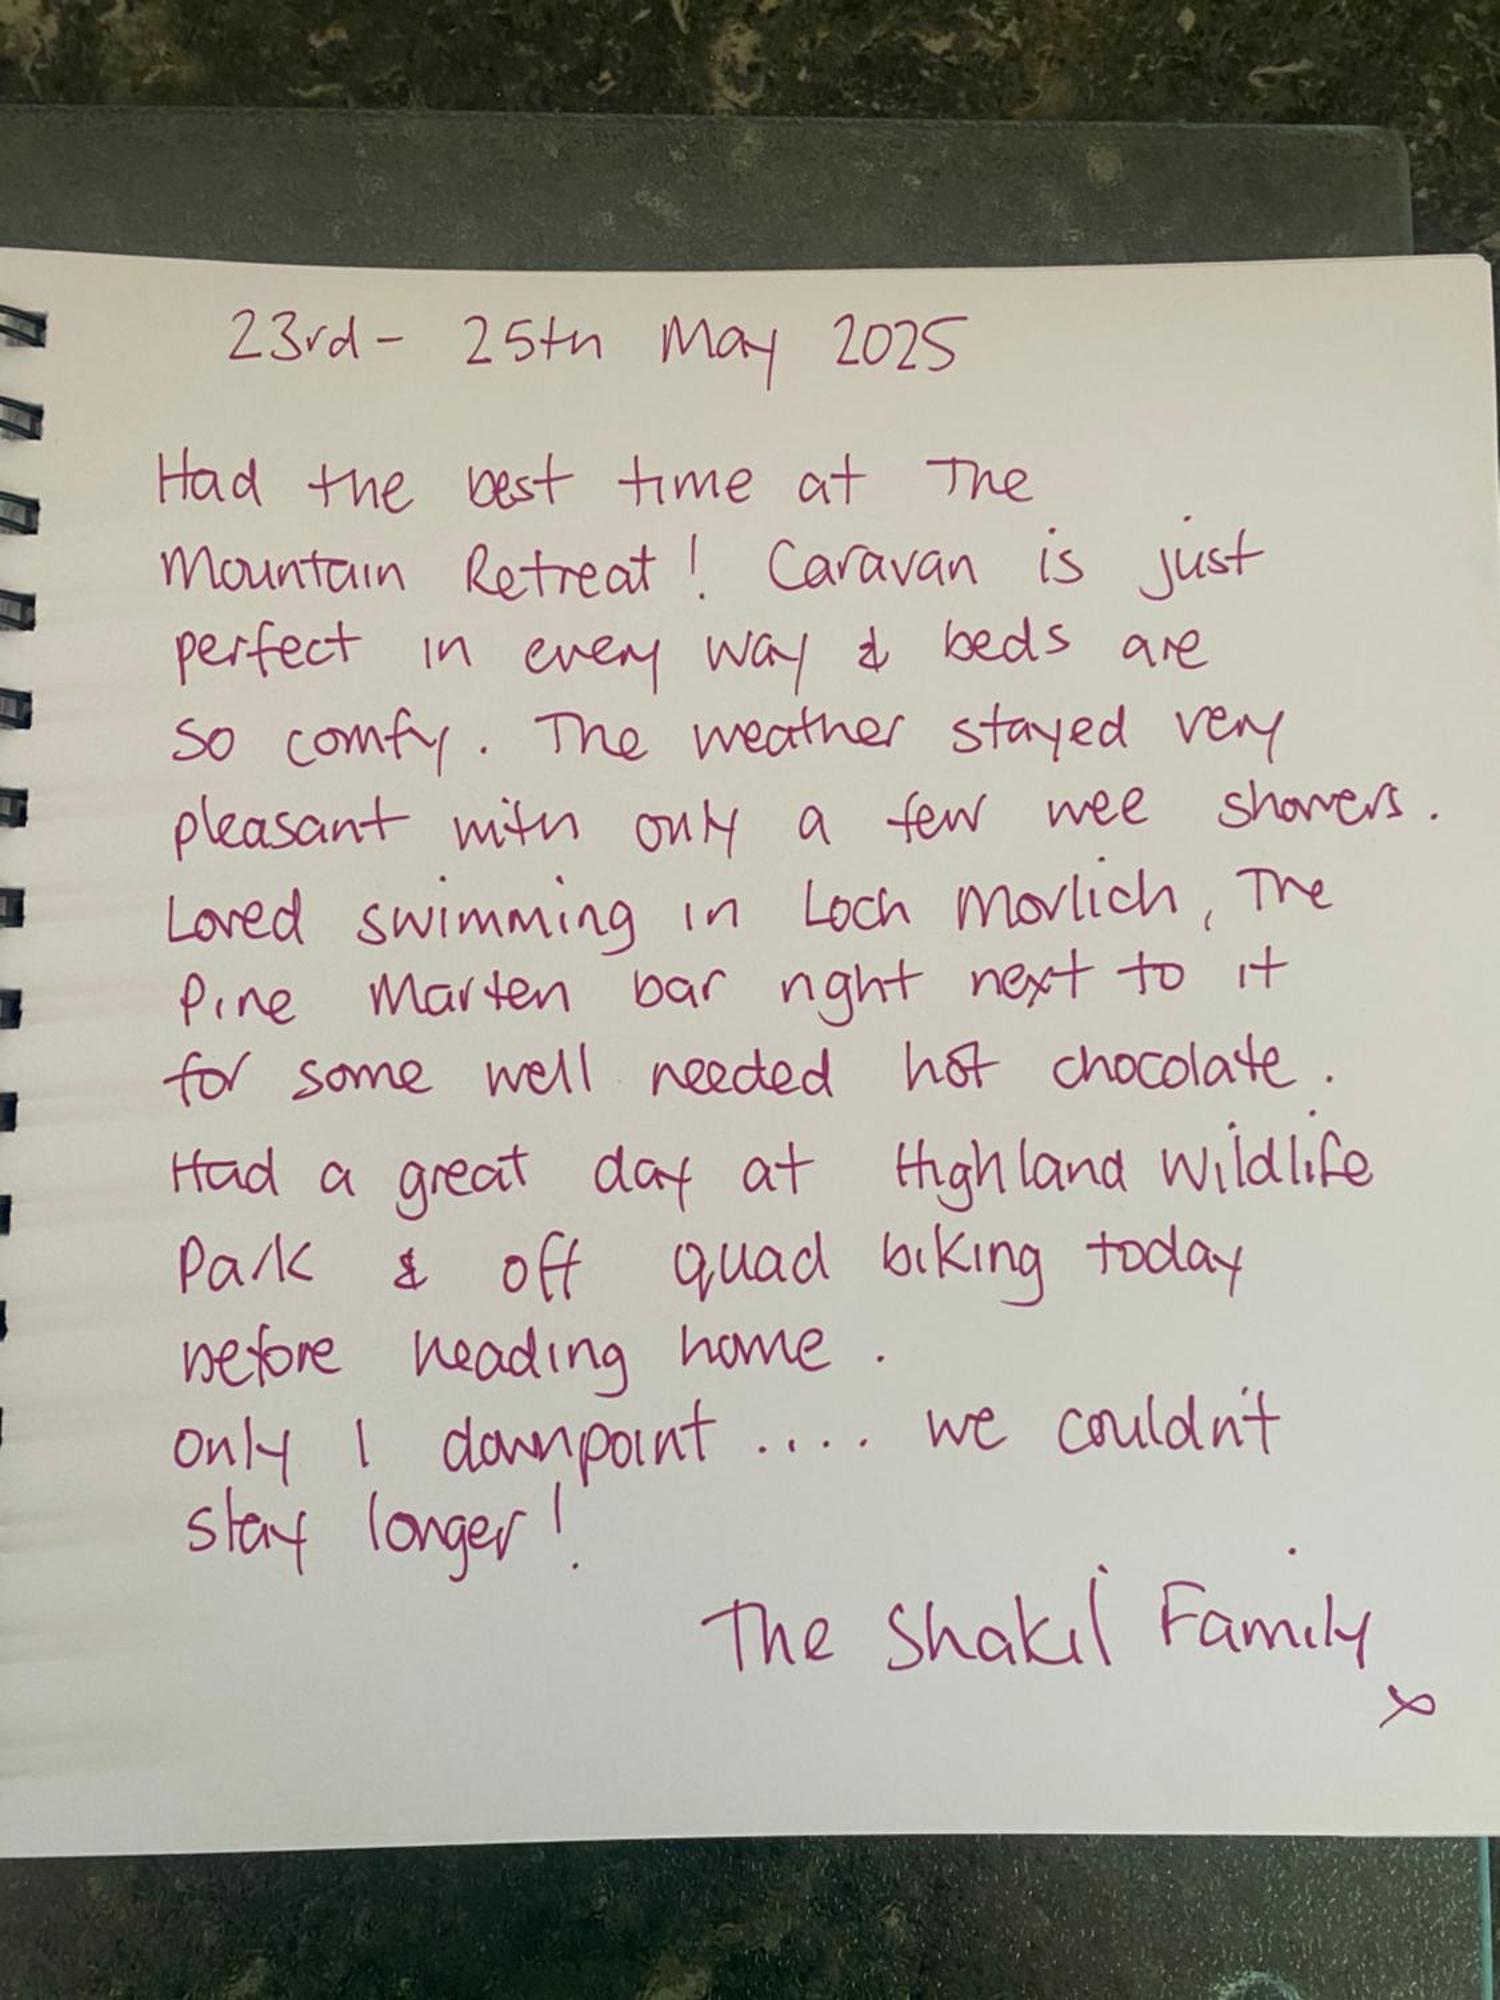 23rd - 25th May 2025
Had the best time at The
Mountain Retreat! Caravan is just
perfect in every way & beds are
so comfy. The weather stayed very
pleasant with only a few wee showers.
Loved swimming in Loch Morlich, The
Pine Marten bar right next to it
for some well needed hot chocolate.
Had a great day at Highland Wildlife
Park & off quad biking today
before heading home.
only 1 downpoint .... we couldn't
stay longer!
The Shakil Family
x